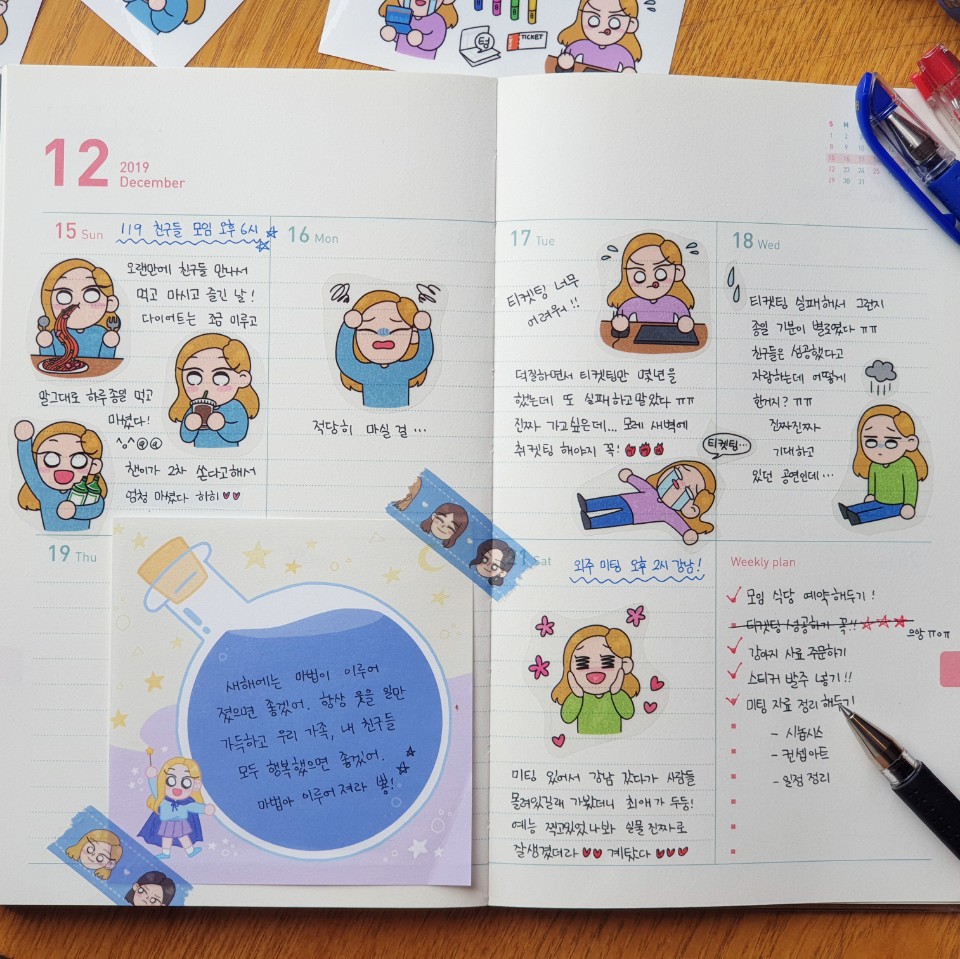 텅
TICKET
12
2019
December
S M
1 2 3
8 9 10
15 16 17
22 23 24 25
29 30 31
15 Sun
119 친구들 모임 오후 6시
오랜만에 친구들 만나서
먹고 마시고 즐긴 날!
다이어트는 조금 미루고
말그대로 하루종일 먹고
마셨다!
찬이가 2차 쏜다고해서
엄청 마셨다 히히
16 Mon
적당히 마실 걸...
17 Tue
티켓팅 너무
어려워!!
덕질하면서 티켓팅만 몇년을
했는데 또 실패하고말았다 ㅠㅠ
진짜 가고싶은데... 모레 새벽에
취켓팅 해야지 꼭!
티켓팅...
18 Wed
티켓팅 실패해서 그런지
종일 기분이 별로였다 ㅠㅠ
친구들은 성공했다고
자랑하는데 어떻게
한거지? ㅠㅠ
진짜진짜
기대하고
있던 공연인데...
19 Thu
새해에는 마법이 이루어
졌으면 좋겠어. 항상 웃을 일만
가득하고 우리 가족, 내 친구들
모두 행복했으면 좋겠어.
마법아 이루어져라 뿅!
21 Sat
외주 미팅 오후 2시 강남!
미팅 있어서 강남 갔다가 사람들
몰려있길래 가봤더니 최애가 두둥!
예능 찍고있었나봐 실물 진짜로
잘생겼더라 계탔다
Weekly plan
모임 식당 예약해두기!
티켓팅 성공하기 꼭!!
으앙 ㅠㅇㅠ
강아지 사료 주문하기
스티커 발주 넣기!!
미팅 자료 정리 해두기
- 시놉시스
- 컨셉아트
- 일정 정리